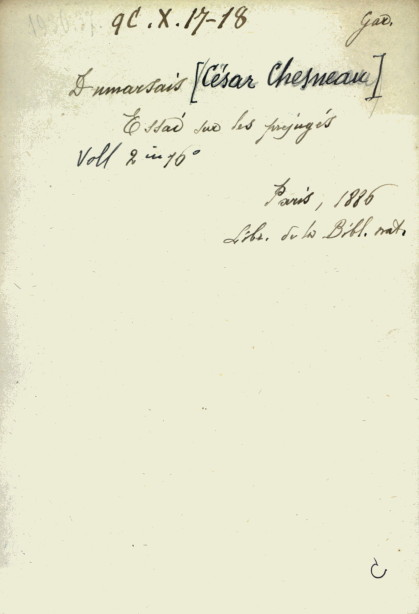 9C.X.17-18
Gac.
Dumarsais [César Chesneau]
Essai sur les préjugés
Voll 2 in 16°
Paris, 1886
Libr. de la Bibl. nat.
C